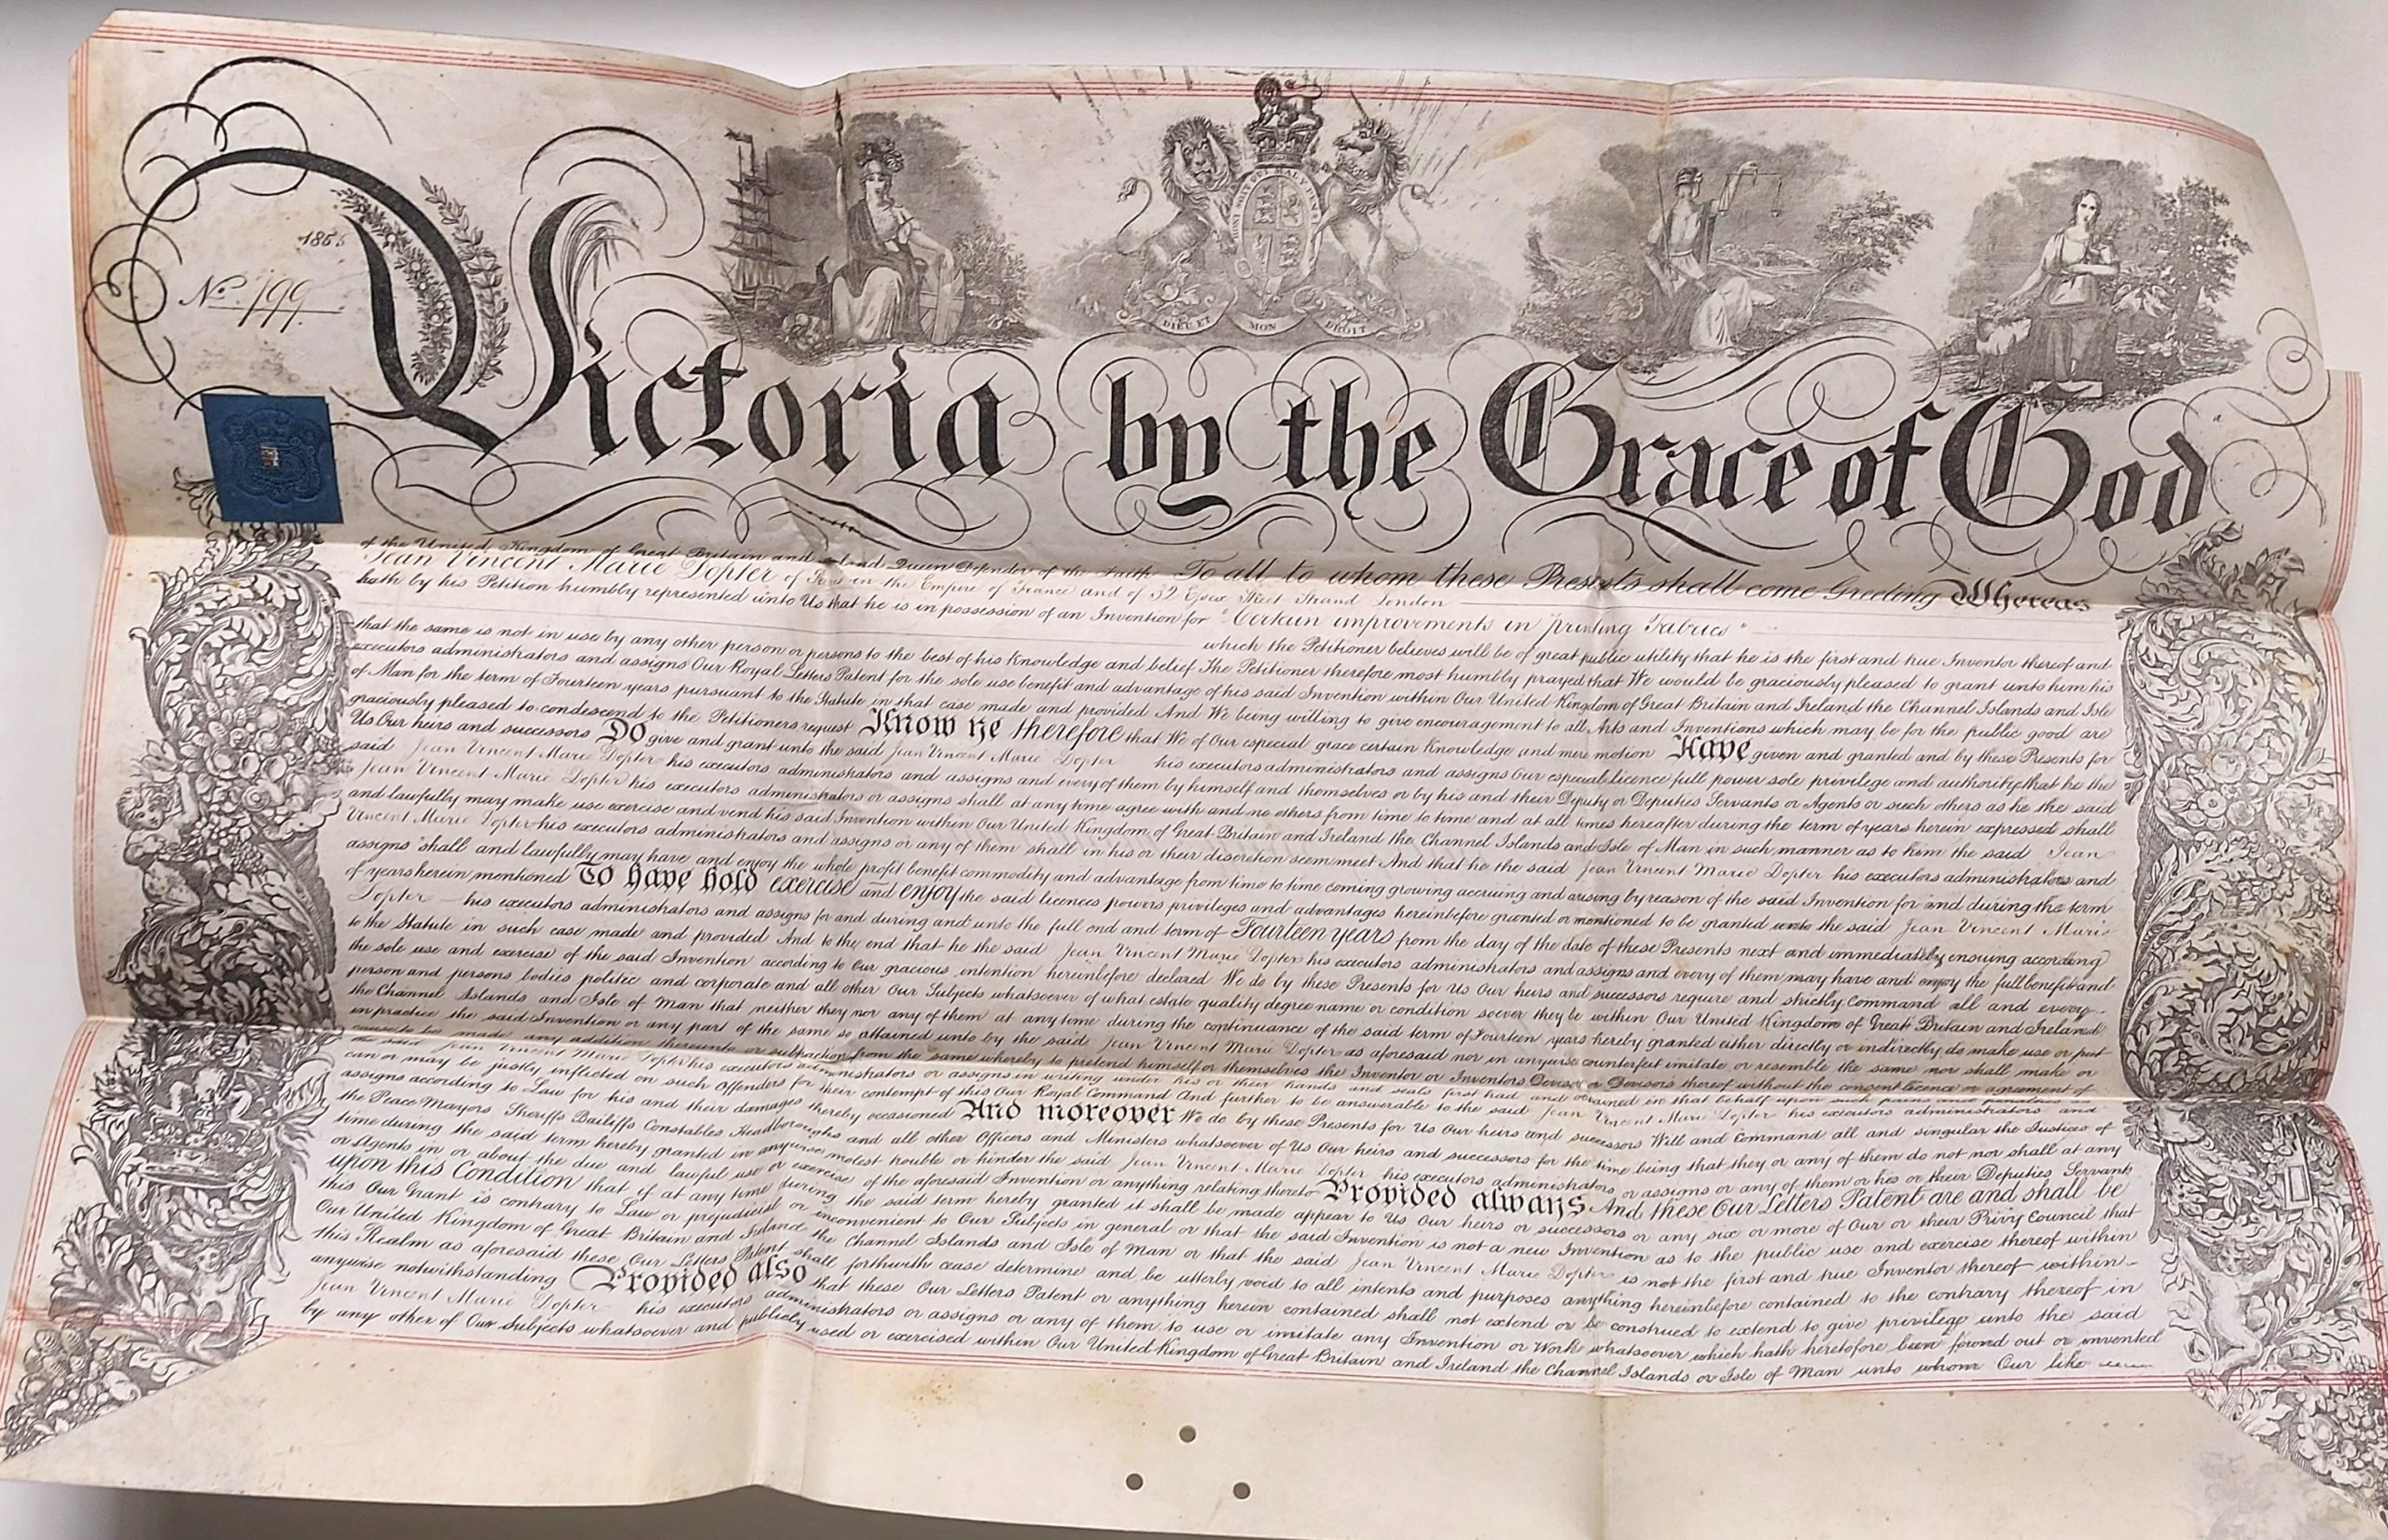 1865
No. 199.
HONI SOIT QUI MAL Y PENSE
DIEU ET MON DROIT
Victoria by the Grace of God
of the United Kingdom of Great Britain and Ireland Queen Defender of the Faith To all to whom these Presents shall come Greeting Whereas
Jean Vincent Marie Dopter of in the Empire of France and of 52 Street Strand London
hath by his Petition humbly represented unto Us that he is in possession of an Invention for "Certain improvements in printing Fabrics"
which the Petitioner believes will be of great public utility that he is the first and true Inventor thereof and
that the same is not in use by any other person or persons to the best of his knowledge and belief The Petitioner therefore most humbly prayed that We would be graciously pleased to grant unto him his
executors administrators and assigns Our Royal Letters Patent for the sole use benefit and advantage of his said Invention within Our United Kingdom of Great Britain and Ireland the Channel Islands and Isle
of Man for the term of Fourteen years pursuant to the Statute in that case made and provided And We being willing to give encouragement to all Arts and Inventions which may be for the public good are
graciously pleased to condescend to the Petitioners request Know ye therefore that We of Our especial grace certain knowledge and mere motion Have given and granted and by these Presents for
Us Our heirs and successors Do give and grant unto the said Jean Vincent Marie Dopter his executors administrators and assigns Our especial licence full power sole privilege and authority that he the
said Jean Vincent Marie Dopter his executors administrators and assigns and every of them by himself and themselves or by his and their Deputy or Deputies Servants or Agents or such others as he the said
Jean Vincent Marie Dopter his executors administrators or assigns shall at any time agree with and no others from time to time and at all times hereafter during the term of years herein expressed shall
and lawfully may make use exercise and vend his said Invention within Our United Kingdom of Great Britain and Ireland the Channel Islands and Isle of Man in such manner as to him the said Jean
Vincent Marie Dopter his executors administrators and assigns or any of them shall in his or their discretion seem meet And that he the said Jean Vincent Marie Dopter his executors administrators and
assigns shall and lawfully may have and enjoy the whole profit benefit commodity and advantage from time to time coming growing accruing and arising by reason of the said Invention for and during the term
of years herein mentioned To have hold exercise and enjoy the said licences powers privileges and advantages hereinbefore granted or mentioned to be granted unto the said Jean Vincent Marie
Dopter his executors administrators and assigns for and during and unto the full end and term of Fourteen years from the day of the date of these Presents next and immediately ensuing according
to the Statute in such case made and provided And to the end that he the said Jean Vincent Marie Dopter his executors administrators and assigns and every of them may have and enjoy the full benefit and
the sole use and exercise of the said Invention according to Our gracious intention hereinbefore declared We do by these Presents for Us Our heirs and successors require and strictly Command all and every
person and persons bodies politic and corporate and all other Our Subjects whatsoever of what estate quality degree name or condition soever they be within Our United Kingdom of Great Britain and Ireland
the Channel Islands and Isle of Man that neither they nor any of them at any time during the continuance of the said term of Fourteen years hereby granted either directly or indirectly do make use or put
in practice the said Invention or any part of the same so attained unto by the said Jean Vincent Marie Dopter as aforesaid nor in anywise counterfeit imitate or resemble the same nor shall make or
cause to be made any addition thereunto or subtraction from the same whereby to pretend himself or themselves the Inventor or Inventors Devisor or Devisors thereof without the consent licence or agreement of
the said Jean Vincent Marie Dopter his executors administrators or assigns in writing under his or their hands and seals first had and obtained in that behalf upon such pains and penalties as
can or may be justly inflicted on such Offenders for their contempt of this Our Royal Command And further to be answerable to the said Jean Vincent Marie Dopter his executors administrators and
assigns according to Law for his and their damages thereby occasioned And moreover We do by these Presents for Us Our heirs and successors Will and Command all and singular the Justices of
the Peace Mayors Sheriffs Bailiffs Constables Headboroughs and all other Officers and Ministers whatsoever of Us Our heirs and successors for the time being that they or any of them do not nor shall at any
time during the said term hereby granted in anywise molest trouble or hinder the said Jean Vincent Marie Dopter his executors administrators or assigns or any of them or his or their Deputies Servants
or Agents in or about the due and lawful use or exercise of the aforesaid Invention or anything relating thereto Provided always And these Our Letters Patent are and shall be
upon this Condition that if at any time during the said term hereby granted it shall be made appear to Us Our heirs or successors or any six or more of Our or their Privy Council that
this Our Grant is contrary to Law or prejudicial or inconvenient to Our Subjects in general or that the said Invention is not a new Invention as to the public use and exercise thereof within
Our United Kingdom of Great Britain and Ireland the Channel Islands and Isle of Man or that the said Jean Vincent Marie Dopter is not the first and true Inventor thereof within
this Realm as aforesaid these Our Letters Patent shall forthwith cease determine and be utterly void to all intents and purposes anything hereinbefore contained to the contrary thereof in
anywise notwithstanding Provided also that these Our Letters Patent or anything herein contained shall not extend or be construed to extend to give privilege unto the said
Jean Vincent Marie Dopter his executors administrators or assigns or any of them to use or imitate any Invention or Work whatsoever which hath heretofore been found out or invented
by any other of Our Subjects whatsoever and publicly used or exercised within Our United Kingdom of Great Britain and Ireland the Channel Islands or Isle of Man unto whom Our like